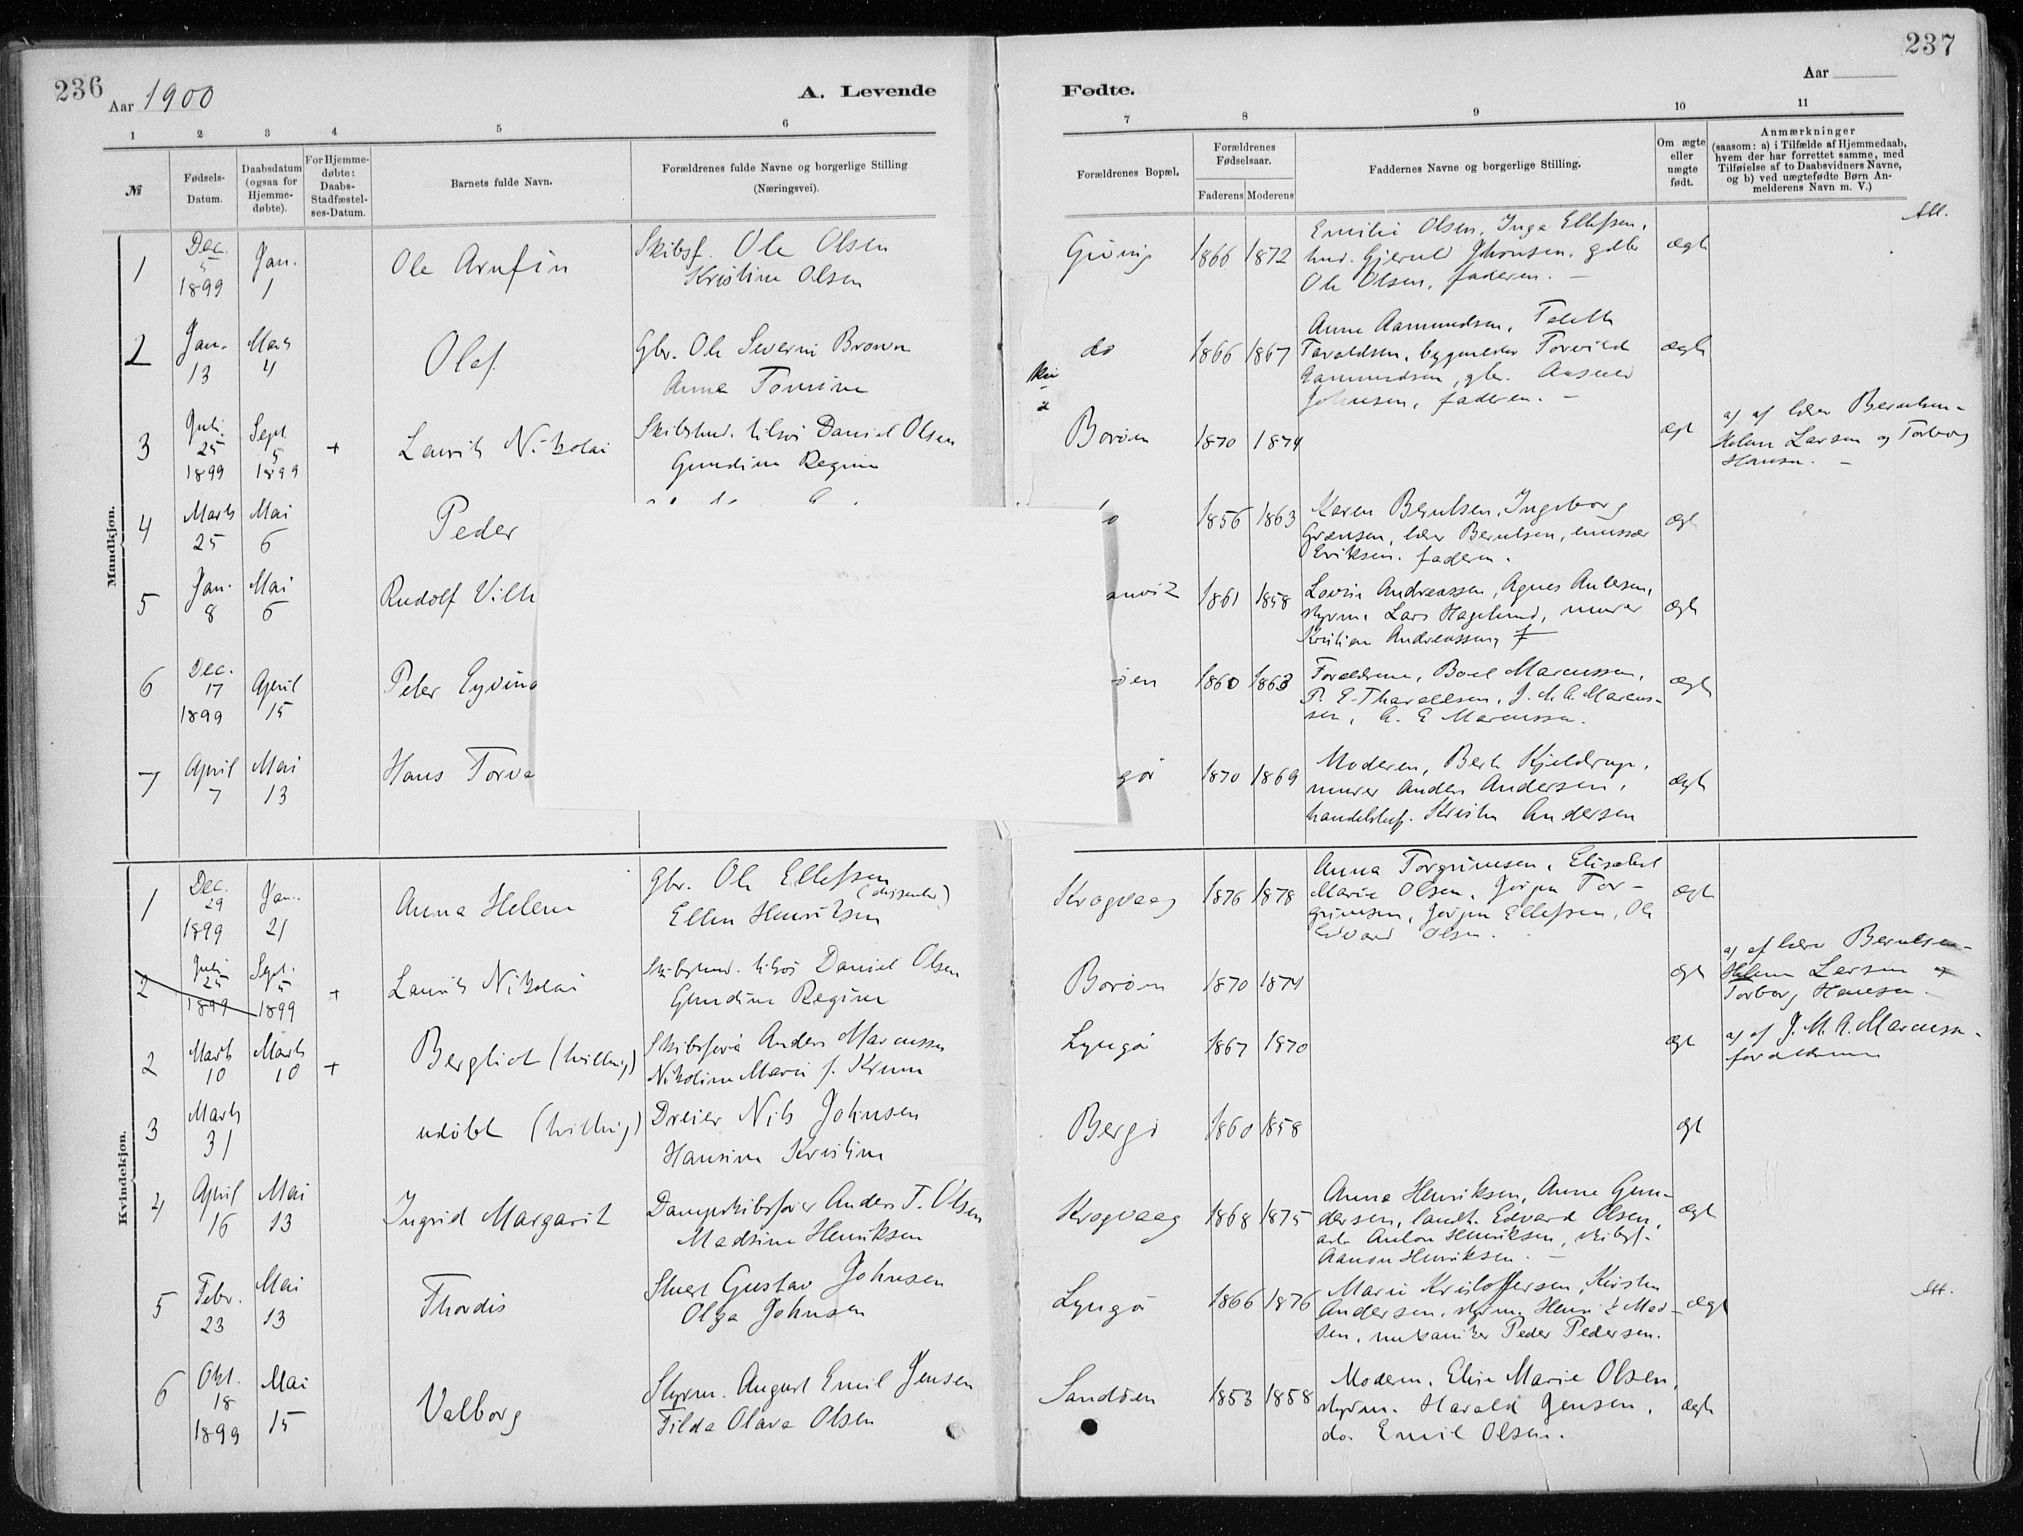 236
Aar 1900
A. Levende
1 2 3 4 5 6
№
Fødsels-
Datum.
Daabsdatum
(ogsaa for
Hjemme-
døbte).
For Hjemme-
døbte:
Daabs-
Stadfæstel-
ses-Datum.
Barnets fulde Navn.
Forældrenes fulde Navne og borgerlige Stilling
(Næringsvei).
Mandkjøn.
1 Dec. 5 1899 Jan. 1 Ole Arnfin
Skibsf. Ole Olsen
Kristine Olsen
2 Jan. 13 Marts 4 Olaf
Gbr. Ole Severin
Anna
3 Juli 25 1899 Sept 5 1899 + Laurits Nikolai
Skibstmd. Daniel Olsen
Gundine Regine
4 Marts 25 Mai 6 Peder
5 Jan. 8 Mai 6 Rudolf Vilh
6 Dec. 17 1899 April 15 Peter Eyvind
7 April 7 Mai 13 Hans Torva
Kvindekjøn.
1 Dec. 29 1899 Jan. 21 Anna Helene
Gbr. Ole Ellefsen
(dissenter)
Ellen Henriksen
2 Juli 25 1899 Sept. 5 1899 + Laurits Nikolai
Skibstmd. Daniel Olsen
Gundine Regine
2 Marts 10 Marts 10 + Bergliot (tvilling)
Skibsfører Anders Marcussen
Nikoline Marie f.
3 Marts 31 udøbt (tvilling)
Dreier Nils Johnsen
Hansine Kristine
4 April 16 Mai 13 Ingrid Margarit
Dampskibsfører Anders T. Olsen
Madsine Henriksen
5 Febr. 23 Mai 13 Thordis
Stuert Gustav Johnsen
Olga Johnsen
6 Okt. 18 1899 Mai 15 Valborg
Styrm. August Emil Jensen
Tilda Olava Olsen
237
Aar
Fødte.
7 8 9 10 11
Forældrenes Bopæl.
Forældrenes
Fødselsaar.
Faderens Moderens
Faddernes Navne og borgerlige Stilling.
Om ægte
eller
uægte
født.
Anmærkninger
(saasom: a) i Tilfælde af Hjemmedaab,
hvem der har forrettet samme, med
Tilføielse af to Daabsvidners Navne,
og b) ved uægtefødte Børn An-
melderens Navn m. V.)
Gjeving 1866 1872
Emilie Olsen, Inga Ellefsen,
Johnsen, gdbr
Ole Olsen, faderen. —
ægte
do 1866 1867
Anne Aamundsen,
Taraldsen, bygmester Torvild
Aamundsen, gbr. Aasuld
Johnsen, faderen. —
ægte
Borøen 1870 1874 ægt
a) af lærer Berntsen -
Helene Larsen og Torborg
Hansen. —
1856 1863
Karen Berntsen, Ingeborg
lærer Berntsen, emissær
Eriksen. faderen.
ægt
1861 1858
Lovise Andreassen, Agnes
styrm. Lars Hagelund, murer
Kristian Andreassen
ægte
øen 1860 1863
Forældrene, Boel Marcussen,
P. E. Tharaldsen, J. M. A. Marcus-
sen, A. E Marcussen.
ægte
gør 1870 1869
Moderen, Berte Kjeldrup,
murer Anders Andersen,
handelsbesf. Kristen Andersen
ægte
Krogvaag 1876 1878
Anna Torgrimsen, Elisabet
Marie Olsen, Jørgen Tor-
grimsen, Jørgen Ellefsen, Ole
Edvard Olsen.
ægte
Borøen 1870 1874 ægt
a) af lærer Berntsen -
Helene Larsen og
Torborg Hansen.
Lyngør 1867 1870 ægt
a) af J. M. A. Marcussen -
forældrene
Bergø 1860 1858 ægt
Krogvaag 1868 1875
Anna Henriksen, Anne Gun-
dersen, landh. Edvard Olsen,
arb. Anton Henriksen, skibsf.
Aanon Henriksen. —
ægte
Lyngør 1866 1876
Marie Kristoffersen, Kirsten
Andersen, styrm. Henrik Mad-
sen, mekaniker Peder Pedersen.
ægte
Sandøen 1853 1858
Moderen, Elise Marie Olsen,
styrm. Harald Jensen,
do. Emil Olsen.
ægte